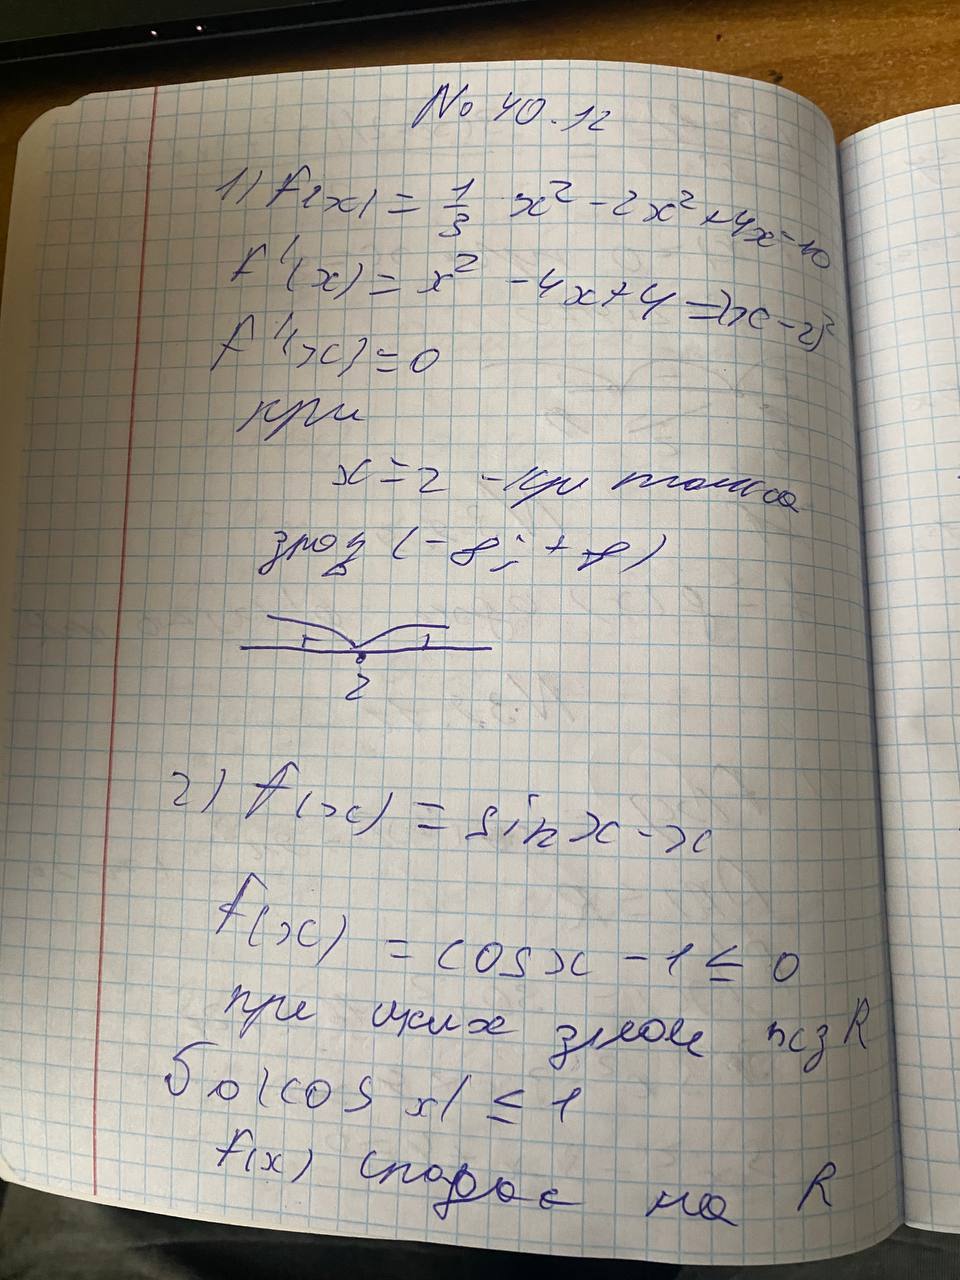 № 40.12
1) f(x) = 1/3 x² - 2x² + 4x - 10
f'(x) = x² - 4x + 4 = (x - 2)²
f'(x) = 0
при
x = 2 - кр точка
зроз (-∞; +∞)
2
2) f(x) = sin x - x
f(x) = cos x - 1 ≤ 0
при R
бо |cos x| ≤ 1
f(x) спадає на R